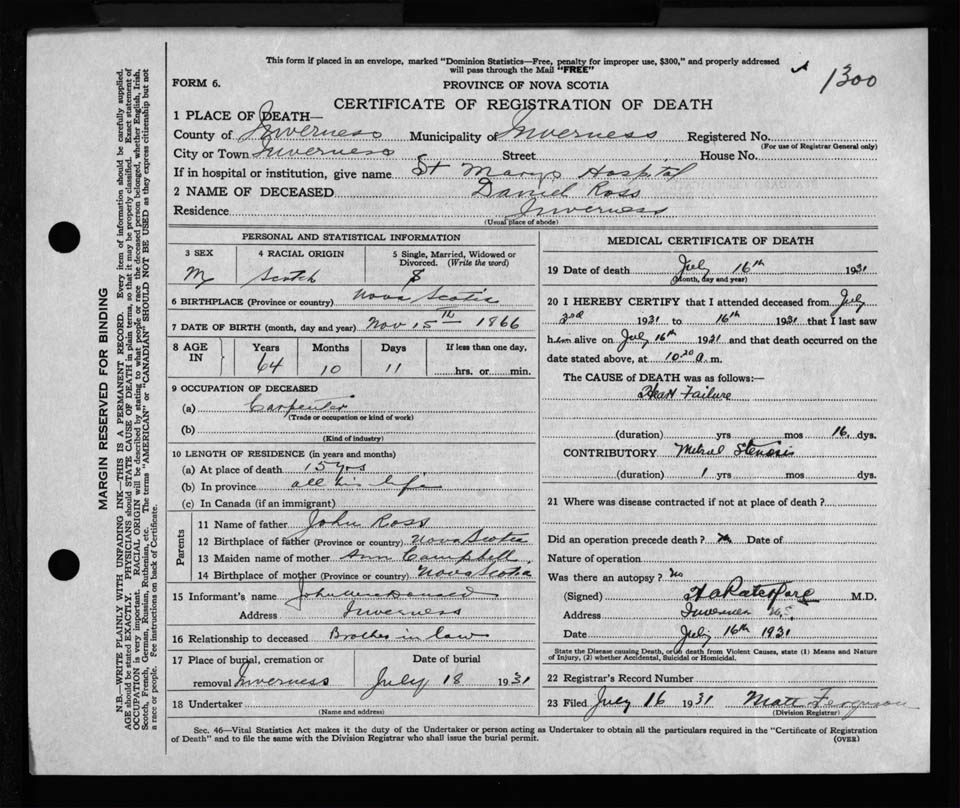 This form if placed in an envelope, marked "Dominion Statistics—Free, penalty for improper use, $300," and properly addressed
will pass through the Mail "FREE"
1300
FORM 6.
PROVINCE OF NOVA SCOTIA
CERTIFICATE OF REGISTRATION OF DEATH
1 PLACE OF DEATH—
County of Inverness Municipality of Inverness Registered No.
(For use of Registrar General only)
City or Town Inverness Street House No.
If in hospital or institution, give name St Marys Hospital
2 NAME OF DECEASED Daniel Ross
Residence Inverness
(Usual place of abode)
PERSONAL AND STATISTICAL INFORMATION
3 SEX 4 RACIAL ORIGIN 5 Single, Married, Widowed or
Divorced. (Write the word)
M Scotch S
6 BIRTHPLACE (Province or country) Nova Scotia
7 DATE OF BIRTH (month, day and year) Nov 15th 1866
8 AGE IN Years Months Days If less than one day,
64 10 11 hrs. or min.
9 OCCUPATION OF DECEASED
(a) Carpenter
(Trade or occupation or kind of work)
(b)
(Kind of industry)
10 LENGTH OF RESIDENCE (in years and months)
(a) At place of death 15 yrs
(b) In province all his life
(c) In Canada (if an immigrant)
Parents
11 Name of father John Ross
12 Birthplace of father (Province or country) Nova Scotia
13 Maiden name of mother Ann Campbell
14 Birthplace of mother (Province or country) Nova Scotia
15 Informant's name John McDonald
Address Inverness
16 Relationship to deceased Brother in law
17 Place of burial, cremation or Date of burial
removal Inverness July 18 1931
18 Undertaker
(Name and address)
MEDICAL CERTIFICATE OF DEATH
19 Date of death July 16th 1931
(Month, day and year)
20 I HEREBY CERTIFY that I attended deceased from July
3rd 1931 to 16th 1931 that I last saw
him alive on July 16th 1931 and that death occurred on the
date stated above, at 10.20 a. m.
The CAUSE of DEATH was as follows:—
Heart Failure
(duration) yrs mos 16 dys.
CONTRIBUTORY Mitral Stenosis
(duration) 1 yrs mos dys.
21 Where was disease contracted if not at place of death?
Did an operation precede death? Date of
Nature of operation
Was there an autopsy? No
(Signed) M.D.
Address Inverness N.S.
Date July 16th 1931
State the Disease causing Death, or in death from Violent Causes, state (1) Means and Nature
of Injury, (2) whether Accidental, Suicidal or Homicidal.
22 Registrar's Record Number
23 Filed July 16 1931 Matt Ferguson
(Division Registrar)
Sec. 46—Vital Statistics Act makes it the duty of the Undertaker or person acting as Undertaker to obtain all the particulars required in the "Certificate of Registration
of Death" and to file the same with the Division Registrar who shall issue the burial permit. (OVER)
MARGIN RESERVED FOR BINDING
N.B.—WRITE PLAINLY WITH UNFADING INK—THIS IS A PERMANENT RECORD. Every item of information should be carefully supplied.
AGE should be stated EXACTLY. PHYSICIANS should STATE CAUSE OF DEATH in plain terms, so that it may be properly classified. Exact statement of
OCCUPATION is very important. RACIAL ORIGIN will be described by stating to what people or race the deceased person belonged, whether English, Irish,
Scotch, French, German, Russian, Ruthenian, etc. The terms "AMERICAN" or "CANADIAN" SHOULD NOT BE USED as they express citizenship but not
a race or people. See instructions on back of Certificate.